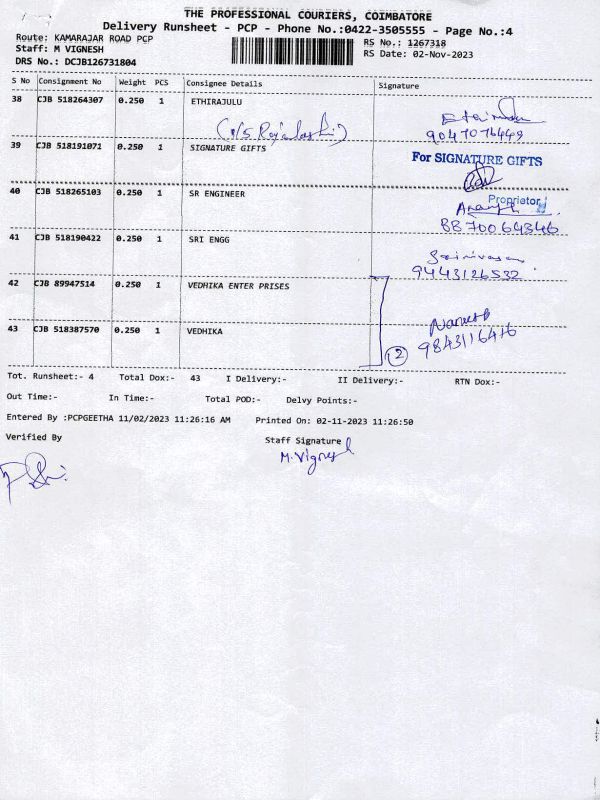 THE PROFESSIONAL COURIERS, COIMBATORE
Delivery Runsheet - PCP - Phone No.:0422-3505555 - Page No.:4
Route: KAMARAJAR ROAD PCP
RS No.: 1267318
Staff: M VIGNESH
RS Date: 02-Nov-2023
DRS No.: DCJB126731804
S No Consignment No Weight PCS Consignee Details Signature
38 CJB 518264307 0.250 1 ETHIRAJULU
9047076449
39 CJB 518191071 0.250 1 SIGNATURE GIFTS
For SIGNATURE GIFTS
Proprietor
40 CJB 518265103 0.250 1 SR ENGINEER
8870064346
41 CJB 518190422 0.250 1 SRI ENGG
Srinivasan
9443126532
42 CJB 89947514 0.250 1 VEDHIKA ENTER PRISES
43 CJB 518387570 0.250 1 VEDHIKA
9843116416
2
Tot. Runsheet:- 4 Total Dox:- 43 I Delivery:- II Delivery:- RTN Dox:-
Out Time:- In Time:- Total POD:- Delvy Points:-
Entered By :PCPGEETHA 11/02/2023 11:26:16 AM Printed On: 02-11-2023 11:26:50
Verified By Staff Signature
M.Vignesh